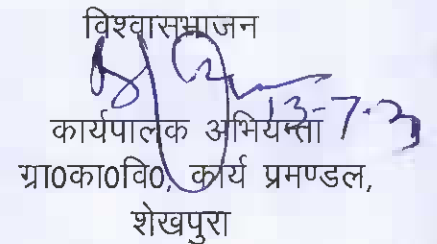 विश्वासभाजन
13-7-23
कार्यपालक अभियन्ता
ग्रा0का0वि0, कार्य प्रमण्डल,
शेखपुरा